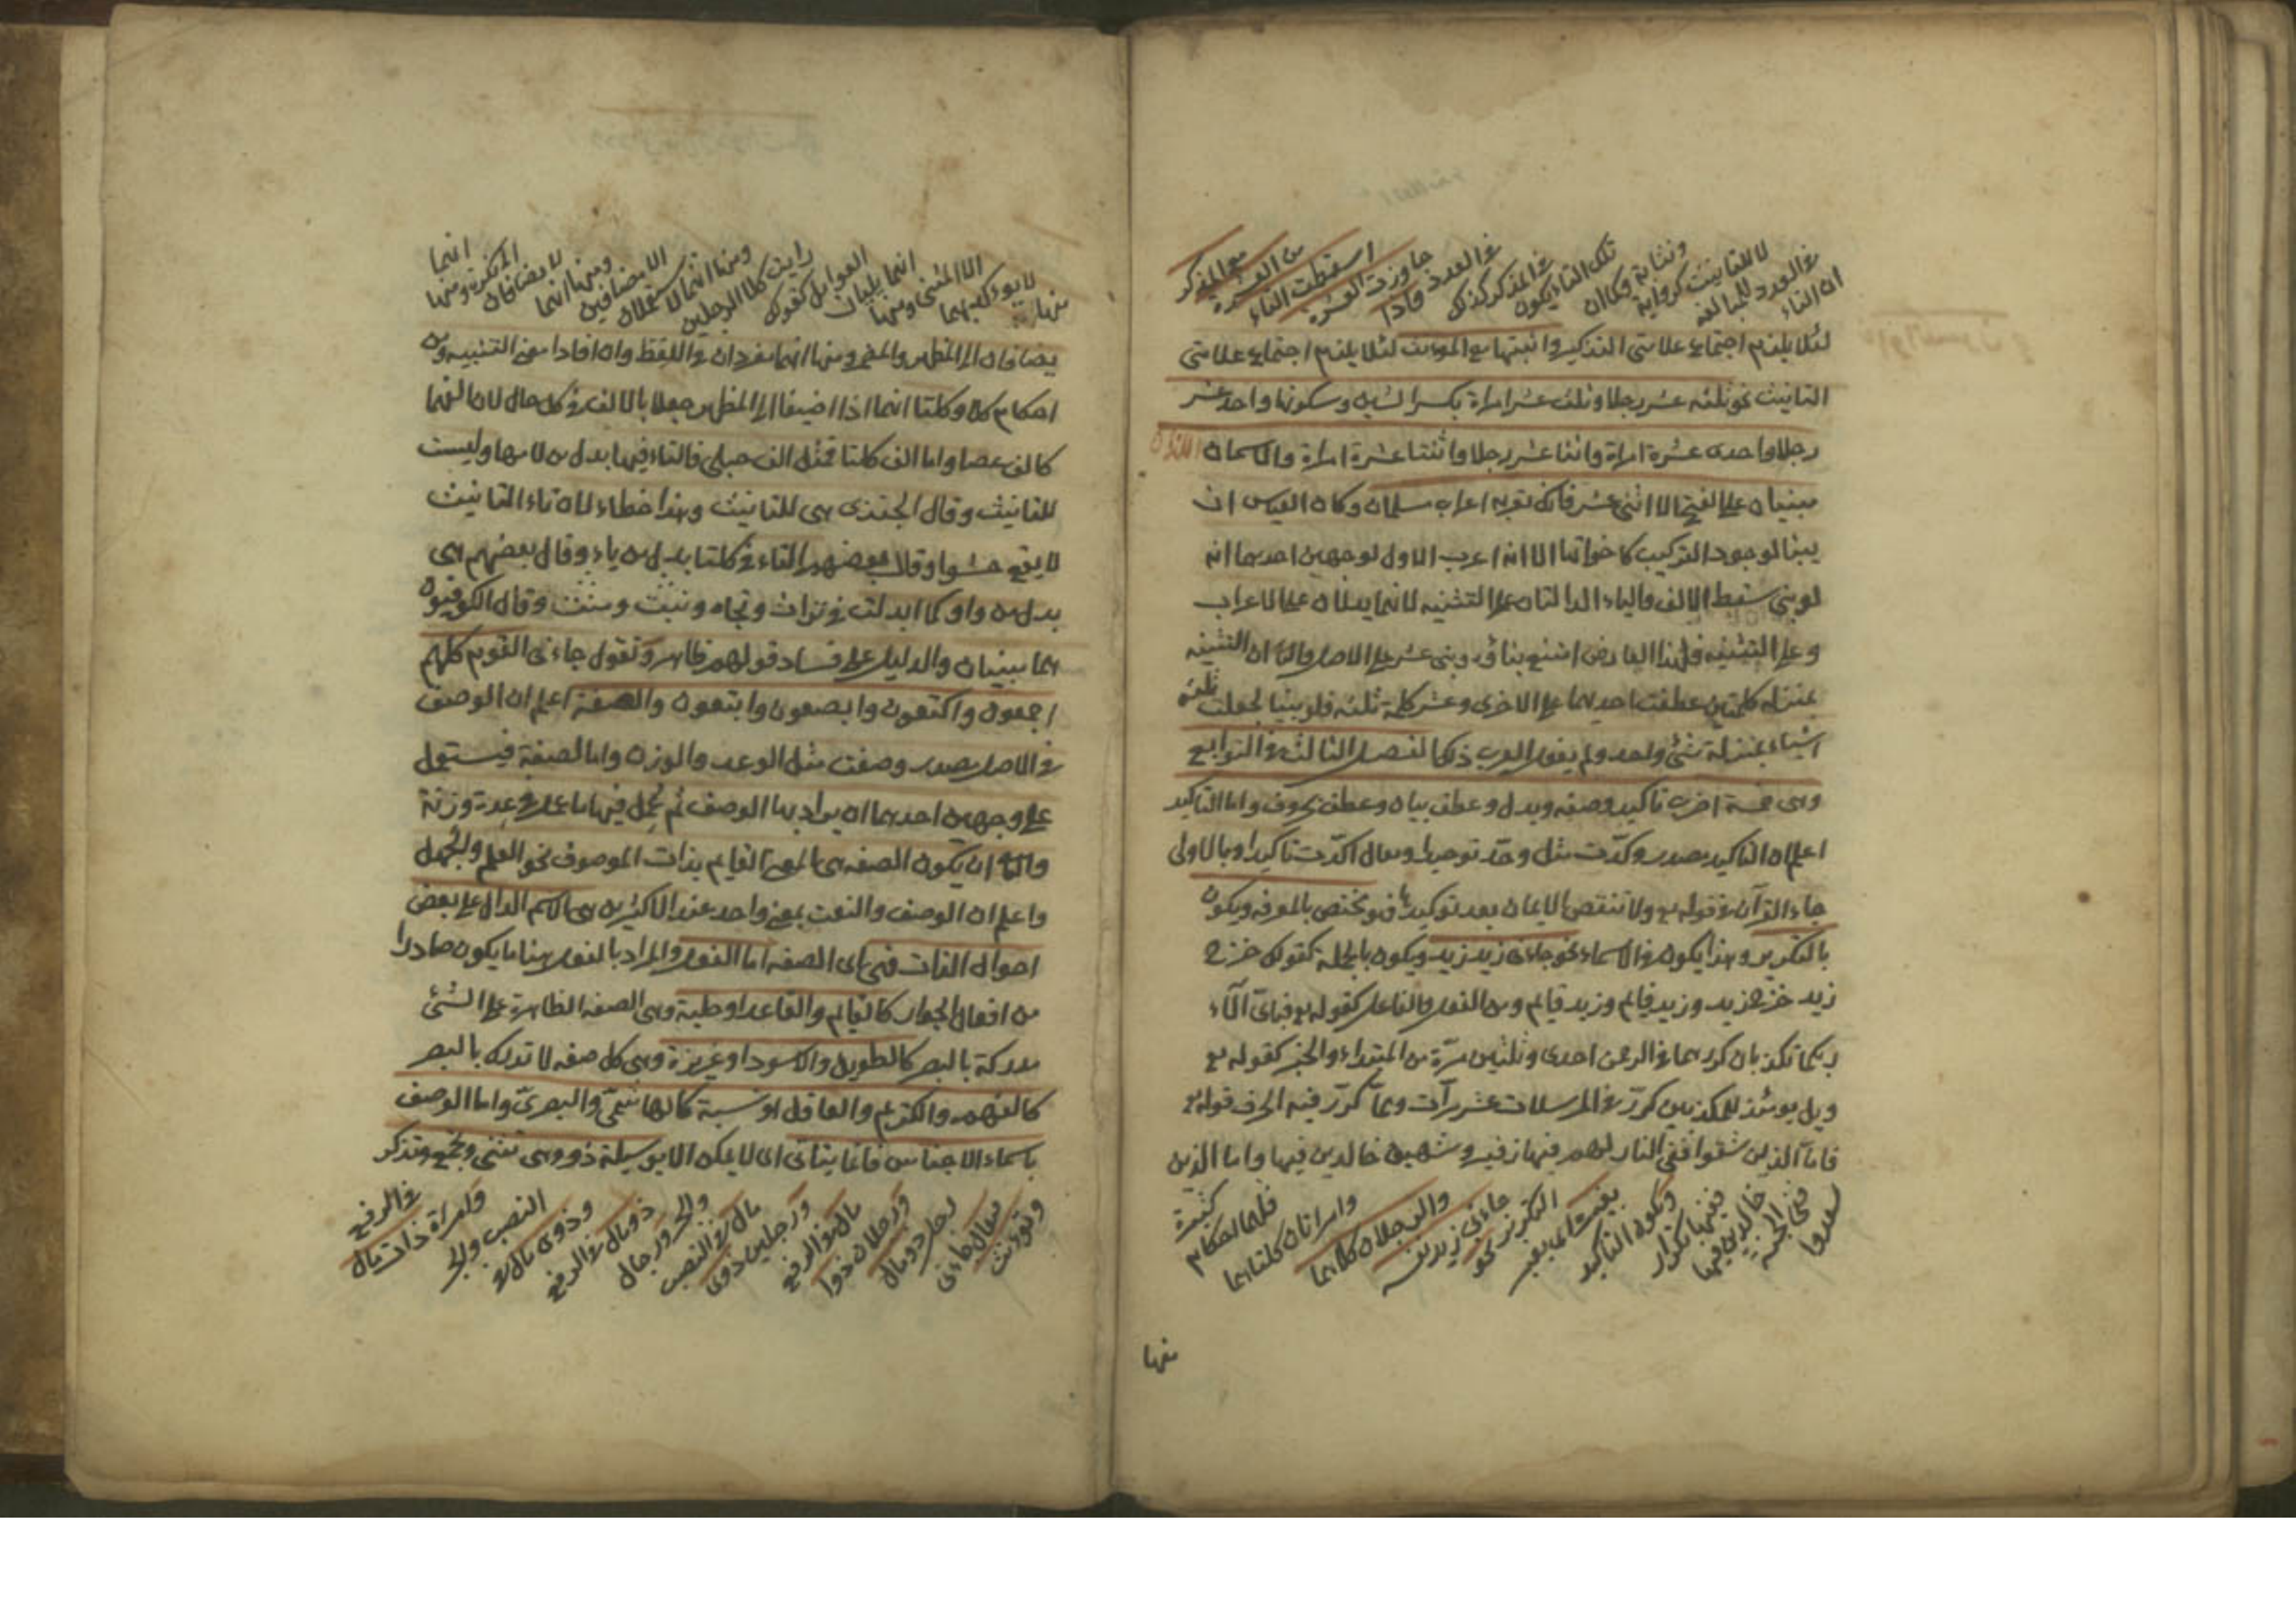 ان التاء
في العدد للمبالغة
لا للتانيث كرواية
ونسابة وكما ان
تلك التاء يكون
في المذكر كذلك
في العدد فاذا
جاوزت العشرة
اسقطت التاء
من العشرة
مع المذكر
لئلا يلزم اجتماع علامتي التذكير واثبتها مع المونث لئلا يلزم اجتماع علامتي
التانيث نحو ثلثه عشر رجلا وثلث عشر امراة بكسر الشين وسكونها واحد عشر
رجلا واحدى عشرة امراة واثنا عشر رجلا واثنتا عشرة امراة والاسمان
مبنيان على الفتح الا اثني عشر فانك تعربه اعراب مسلمان وكان القياس ان
يبنا لوجود التركيب كاخواتها الا انه اعرب الاول لوجهين احدهما انه
لو بني سقط الالف والياء الدالتان على التثنيه لانهما يدلان على الاعراب
وعلى التثنيه فلهذا العارض امتنع بناؤه وبني عشر على الاصل والثاني ان التثنيه
بمنزله كلمتين عطفت احديهما على الاخرى وعشر كلمة ثلثه فلو بنيا لجعلت ثلثه
اشياء بمنزلة شئ واحد ولم يفعل العرب ذلك الفصل الثالث في التوابع
وهى خمسة اضرب تاكيد وصفه وبدل وعطف بيان وعطف بحروف واما التاكيد
اعلم ان التاكيد مصدر وكدت مثل وحد توحيدا ويقال اكدت تاكيدا وبالاولى
جاء القرآن في قوله تع ولا تنقضوا الايمان بعد توكيدها فهو يختص بالمعرفه ويكون
بالتكرير وهذا يكون في الاسماء نحو جاءنى زيد زيد ويكون بالجملة كقولك خرج
زيد خرج زيد وزيد قايم وزيد قايم ومن الفعل والفاعل كقوله تع فباى آلاء
ربكما تكذبان كررهما في الرحمن احدى وثلثين مرة من المبتداء والخبر كقوله تع
ويل يومئذ للمكذبين كرر في المرسلات عشر مرآت ومما كرر فيه الحرف قوله تع
فاما الذين شقوا ففى النار لهم فيها زفير وشهيق خالدين فيها واما الذين
سعدوا
ففى الجنة
خالدين فيها
ففيها تكرار
ويكون التاكيد
بغير
التكرير نحو
جاءنى زيد نفسه
والرجلان كلاهما
وامراتان كلتاهما
فلهما احكام
كثيرة
منها
منها
لا يوكد بهما
الا المثنى ومنها
انهما يليان
العوامل كقولك
رايت كلا الرجلين
ومنها انهما لا يستعملان
الا مضافين
ومنها انهما
لا يضافان
الى نكرة ومنها
انهما
يضافان الى المظهر والمضمر ومنها انهما مفردان في اللفظ وان افادا معنى التثنيه ومن
احكام كلا وكلتا انهما اذا اضيفا الى المظهر جعلا بالالف في كل حال لان الفهما
كالف عصا واما الف كلتا فمثل الف حبلى فالتاء فيها بدل من لامها وليست
للتانيث وقال الجندى هى للتانيث وهذا خطاء لان تاء التانيث
لا يقع حشوا وقال بعضهم التاء في كلتا بدل من ياء وقال بعضهم هى
بدل من واو كما ابدلت في تراث وتجاه وبنت وهنت وقال الكوفيون
هما مبنيان والدليل على فساد قولهم ظاهر وتقول جاءنى القوم كلهم
اجمعون واكتعون وابصعون وابتعون والصفة اعلم ان الوصف
في الاصل مصدر وصفت مثل الوعد والوزن واما الصفة فيستعمل
على وجهين احدهما ان يراد بها الوصف ثم عمل فيها ما عمل في عدة وزنة
والثاني ان يكون الصفه هى المعنى القايم بذات الموصوف نحو العلم والجهل
واعلم ان الوصف والنعت بمعنى واحد عند الاكثرين هى الاسم الدال على بعض
احوال الذات فهى اى الصفه اما الفعل والمراد بالفعل هنا ما يكون صادرا
من افعال الجوارح كالقايم والقاعد او حلية وهى الصفه الظاهرة على الشئ
مدركة بالبصر كالطويل والاسود او غريزة وهى كل صفه لا تدرك بالبصر
كالفهم والكريم والعاقل او نسبة كالهاشمى والبصرى واما الوصف
باسماء الاجناس فانما يتاتى اى لا يمكن الا بوسيلة ذو وهى تثنى وتجمع وتذكر
وتونث
يقال جاءنى
رجل ذو مال
ورجلان ذوا
مال في الرفع
ورجلين ذوى
مال في النصب
والجر ورجال
ذوو مال في الرفع
وذوى مال في
النصب والجر
وامراة ذات مال
في الرفع